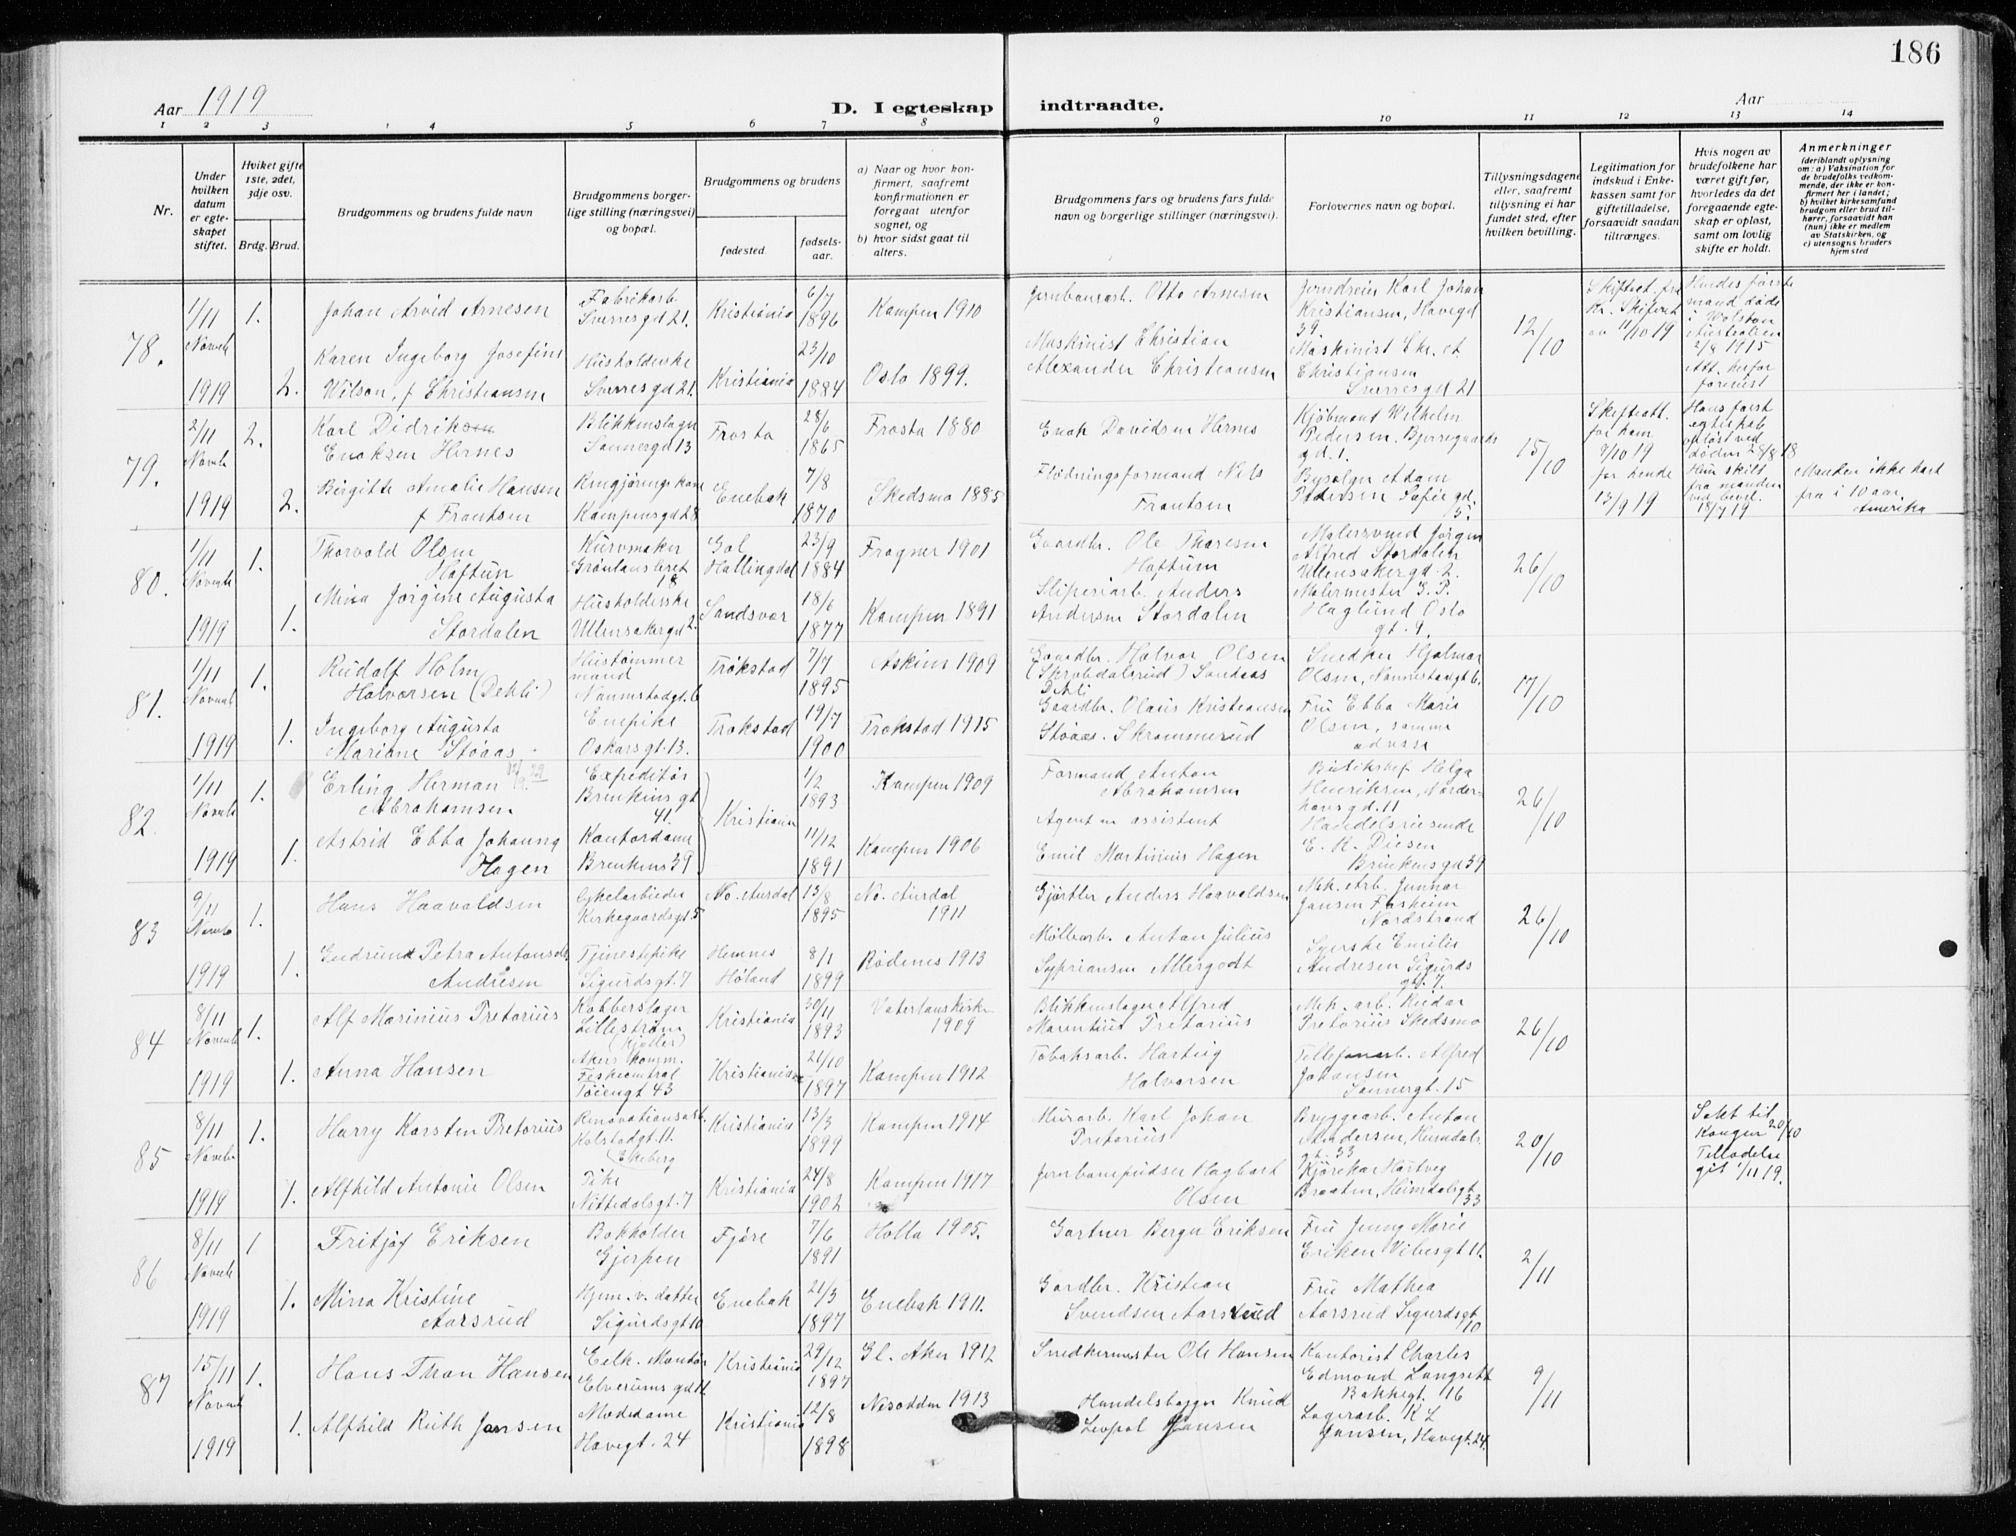 186
Aar 1919 D. I egteskap indtraadte. Aar
1 2 3 4 5 6 7 8 9 10 11 12 13 14
Nr.
Under hvilken datum er egteskapet stiftet.
Hvilket gifte 1ste, 2det, 3dje osv.
Brdg. Brud.
Brudgommens og brudens fulde navn
Brudgommens borgerlige stilling (næringsvei) og bopæl.
Brudgommens og brudens
fødested.
fødselsaar.
a) Naar og hvor konfirmert, saafremt konfirmationen er foregaat utenfor sognet, og
b) hvor sidst gaat til alters.
Brudgommens fars og brudens fars fulde navn og borgerlige stillinger (næringsvei).
Forlovernes navn og bopæl.
Tillysningsdagene eller, saafremt tillysning ei har fundet sted, efter hvilken bevilling.
Legitimation for indskud i Enkekassen samt for giftetilladelse, forsaavidt saadan tiltrænges.
Hvis nogen av brudefolkene har været gift før, hvorledes da det foregaaende egteskap er opløst, samt om lovlig skifte er holdt.
Anmerkninger
(deriblandt oplysning om: a) Vaksination for de brudefolks vedkommende, der ikke er konfirmert her i landet; b) hvilket kirkesamfund brudgom eller brud tilhører, forsaavidt han (hun) ikke er medlem av Statskirken, og c) utensogns bruders hjemsted
78. 1/11 Novemb 1919
1. Johan Arvid Arnesen Fabrikarb. Sverresgd 21. Kristiania 6/7 1896 Kampen 1910 Jernbanearb. Otto Arnesen
Karl Johan Kristiansen, Havegd 39. 12/10 11/10 19
2. Karen Ingeborg Josefine Wilson, f Christiansen Husholderske Sverresgd 21. Kristiania 23/10 1884 Oslo 1899. Maskinist Christian Alexander Christiansen
Maskinist Chr. Christiansen Sverresgd 21
79. 2/11 Novemb 1919
2. Karl Didriksen Enoksen Hernes Blikkenslager Sannergd 13 Frosta 28/6 1865 Frosta 1880 Enok Davidsen Hernes
Kjøbmand Wilhelm Pedersen, Bjerregaards gd. 1. 15/10
2. Birgitte Amalie Hansen f Frantsen Kampensgd 28 Enebak 7/8 1870 Skedsmo 1885 Flødningsformand Nils Frantsen
Pedersen Sofie gd. 5. 13/9 19
Manden ikke hørt fra i 10 aar, Amerika
80. 1/11 Novemb 1919
1. Thorvald Olsen Haftun Kurvmaker Grønlansleret 18 Gol Hallingdal 23/9 1884 Fragner 1901 Gaardbr. Ole Thoresen Haftun
Jørgen Alfred Stordalen Ullensakergd. 2. 26/10
1. Mina Jørgine Augusta Stordalen Husholderske Ullensakergd 2. Sandsvær 18/6 1877 Kampen 1891 Sliperiarb. Anders Andersen Stordalen
Malermester G. P. Haglund Oslo gt. 9.
81. 1/11 Novemb 1919
1. Rudolf Holm Halvorsen (Dehli) Hustømmermand Nannestadgt. 6 Trøkstad 7/7 1895 Askim 1909 Gaardbr. Halvor Olsen (Skrebdalsrud) Sandaas Dehli
Snedker Hjalmar Olsen, Nannestadgt 6. 17/10
1. Ingeborg Augusta Mariane Støaas Enepike Oskarsgt. 13. Trøkstad 19/7 1900 Trøkstad 1915 Gaardbr. Olaus Kristiansen Støaas. Skrammerud
Fru Ebba Marie Olsen, samme adresse
82. 1/11 Novemb 1919
1. Erling Herman Abrahamsen Expeditør Brinkens gt 41. Kristiania 1/2 1893 Kampen 1909 Formand Anton Abrahamsen
Helga Henriksen, Norderhovsgd. 11 26/10
1. Astrid Ebba Johanne Hagen Kontordame Brinkens 39 11/12 1891 Kampen 1906 Agent assistent Emil Martinius Hagen
Handelsreisende E. R. Diesen Brinkensgd 39
83 9/11 Novemb 1919
1. Hans Haavaldsen Cykelarbeider Kirkegaardsgd 5 No. Aurdal 13/8 1895 No. Aurdal 1911 Gjørtler Anders Haavaldsen
Mek. Arb. Gunnar Jansen Nordstrand 26/10
1. Gudrund Petra Andresen Tjenestepike Sigurdsgt. 7 Hemnes Høland 8/1 1899 Rødenes 1913 Møllearb. Anton Julius Sypriansen
Syerske Emilie Andresen Sigurds gt. 7.
84 8/11 Novemb 1919
1. Alf Marinius Pretorius Kobberslager Lillestrøm (Kjeller) Kristiania 30/11 1893 Vaterlanskirke 1909 Blikkenslager Alfred Marentius Pretorius
Mek. arb. Reidar Pretorius Skedsmo 26/10
1. Anna Hansen Akers komm. Tøiengt 43 Kristiania 21/10 1897 Kampen 1912 Tobaksarb. Hartvig Halvorsen
Alfred Johansen Sannergt. 15
85 8/11 Novemb 1919
1. Harry Karsten Pretorius Renovationsarb. Kolstadgt. 11. Ekeberg Kristiania 13/3 1899 Kampen 1914 Murarb. Karl Johan Pretorius
Bryggearb. Anton Andersen, Heimdals gt. 33 20/10
Søkt til Kongen 20/10 Tilladelse git 1/11 19.
1. Alfhild Antonie Olsen Pike Nittedalsgt. 7 Kristiania 24/8 1902 Kampen 1917 Jernbanepudser Hagbart Olsen
Kjørekar Hartvig Braaten, Heimdalsgt 33
86 8/11 Novemb 1919
1 Fritjof Eriksen Bokholder Gjerpen Fjøre 7/6 1891 Holla 1905. Gartner Berger Eriksen
Fru Jenny Marie Eriken Vibesgt 11. 2/11
1. Mina Kristine Aarsrud Hjem. v. datter Sigurdsgt 10 Enebak 21/3 1897 Enebak 1911. Gardbr. Kristian Svendsen Aarsrud
Fru Mathea Aarsrud Sigurdsgt 10
87 15/11 Novemb 1919
1. Hans Thon Hansen Elek. Montør Elverumsgd 11 Kristiania 29/12 1897 Gl. Aker 1912 Snedkermester Ole Hansen
Kontorist Charles Edmond Langseth Bakkegt. 16 9/11
1. Alfhild Ruth Jansen Modedame Havegt. 24 Kristiania 12/8 1898 Nesodden 1913 Knud Leopol Jansen
Lagerarb. K L Jansen, Havegt. 24.